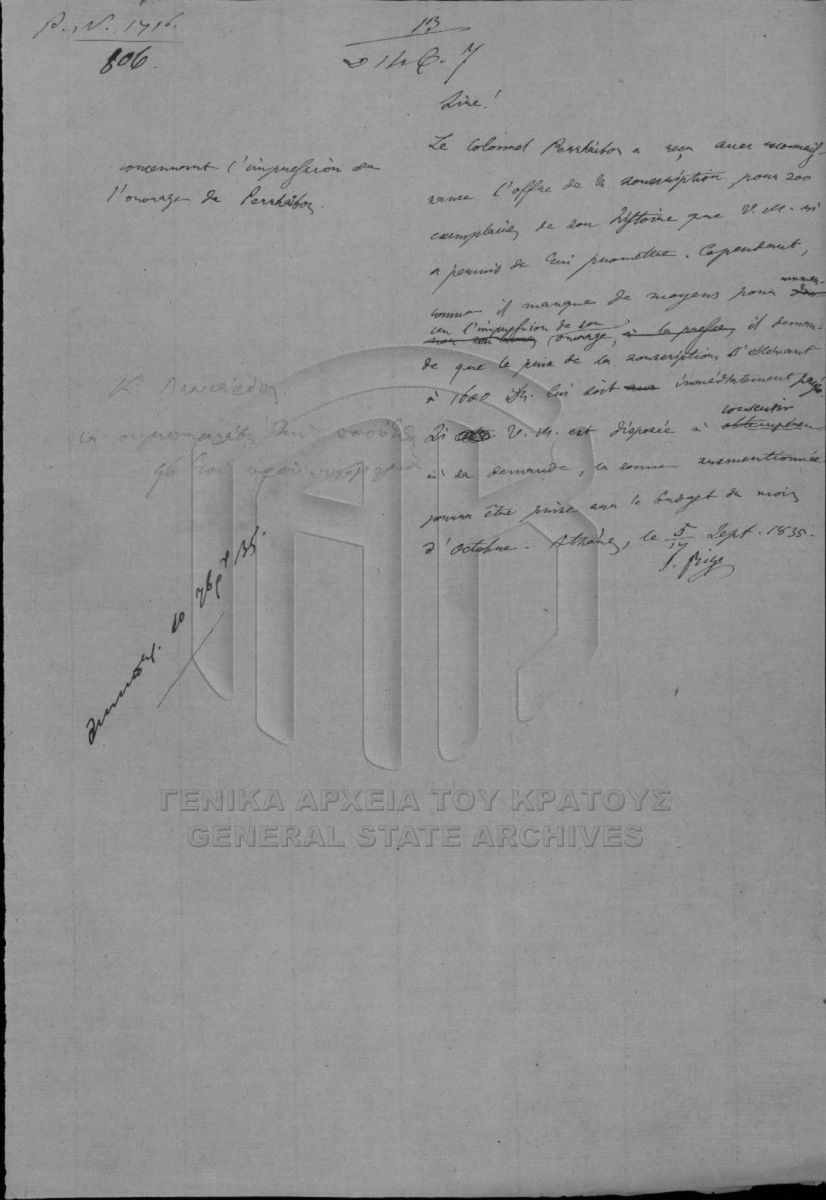 P. N. 1716.
806.
13
concernant l'impression de
l'ouvrage de Perrhaibos.
Sire!
Le Colonnel Perrhaibos a reçu avec reconnais-
sance l'offre de la souscription pour 200
exemplaires de son Histoire que V. M. 
a permis de lui promettre. Cependant,
comme il manque de moyens pour commen-
cer l'impression de son ouvrage, à la presse, il deman-
de que le prix de la souscription s'élevant
à 1600 Dr. lui soit immédiatement payé.
Si V. M. est disposée à consentir
à sa demande, la somme susmentionnée
pourra être prise sur le budget du mois
d'Octobre. Athènes, le 5/17 Sept. 1835.
ΓΕΝΙΚΑ ΑΡΧΕΙΑ ΤΟΥ ΚΡΑΤΟΥΣ
GENERAL STATE ARCHIVES